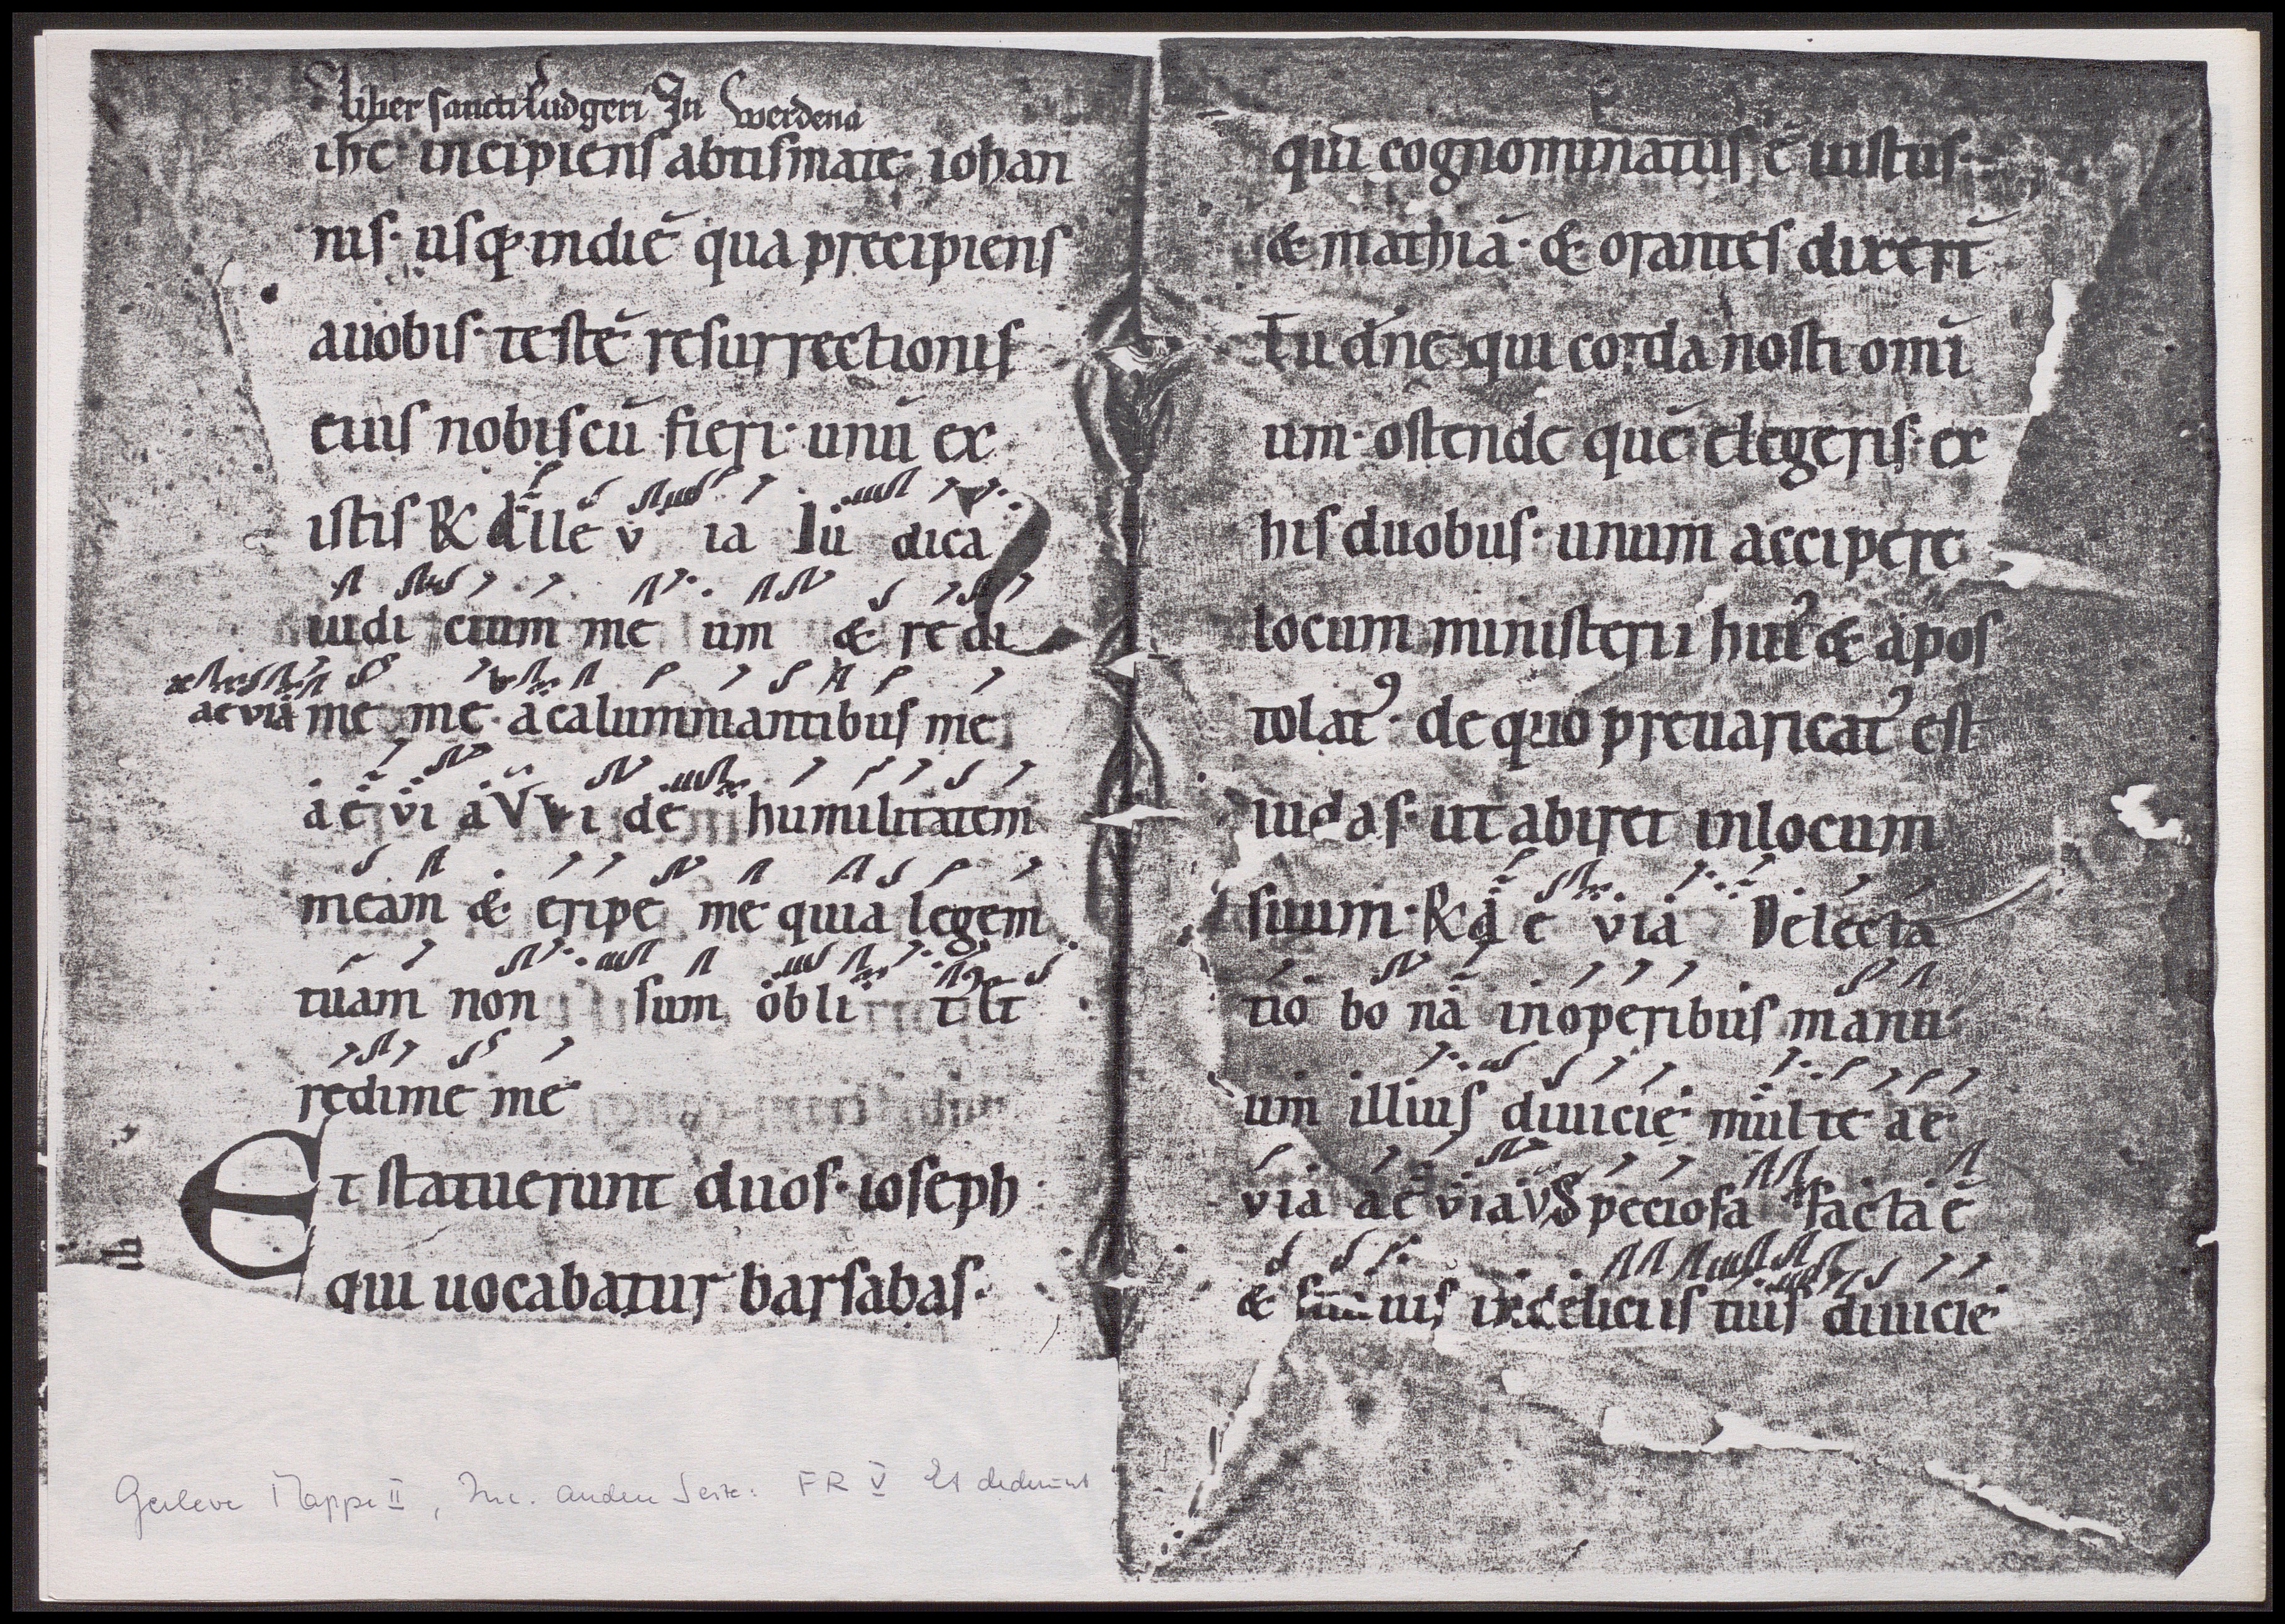 liber sancti ludgeri In werdena
ihc incipiens abtismate iohan
nis· usq; indiē qua precipiens
auobis· testē resurrectionis
eius nobiscū fieri· unū ex
istis ℟ ałłe v ia Iu dica
iudi cium me um & redi
ae via me me· acalumniantibus me
ae vi a V Vi de humilitatem
meam & eripe me quia legem
tuam non sum obli t lt
redime me
Et statuerunt duos· ioseph·
qui uocabatur barsabas·
qui cognominatus ē iustus·
& mathiā· & orantes dixerт̄
Tu dn̄e qui corda nosti omī
um· ostende quē elegeris· ex
his duobus· unum accipere
locum ministerii hui9 & apos
tolat9· de quo preuaricat9 est
iudas· ut abiret inlocum
suum· ℟ a e via Delecta
tio bo na inoperibus manu
um illius diuicie· multe ae
via ae via V Speciosa facta ē
& suauis indeliciis tuis diuicie
Gerleve Mappe II, Inc. andere Seite: FR V Et dederunt